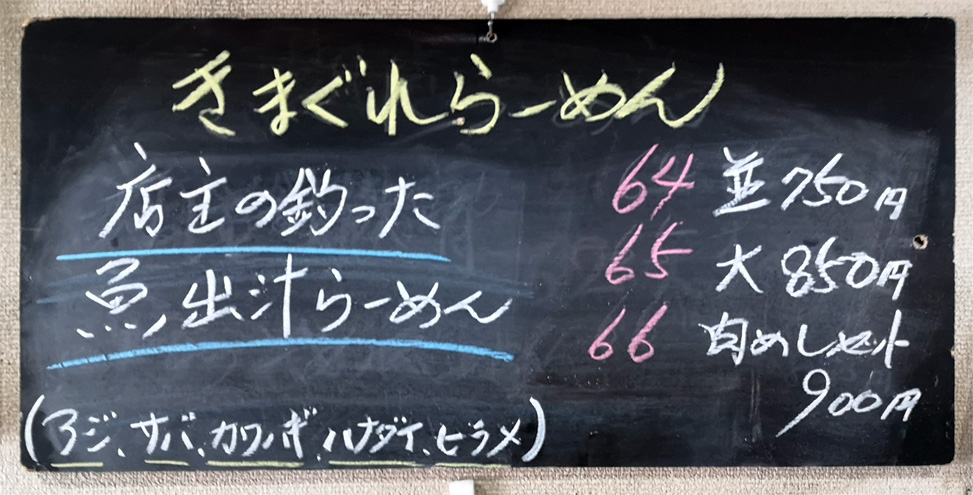 きまぐれらーめん
店主の釣った
魚出汁らーめん
(アジ、サバ、カワハギ、ハナダイ、ヒラメ)
64 並750円
65 大850円
66 肉めしセット
900円